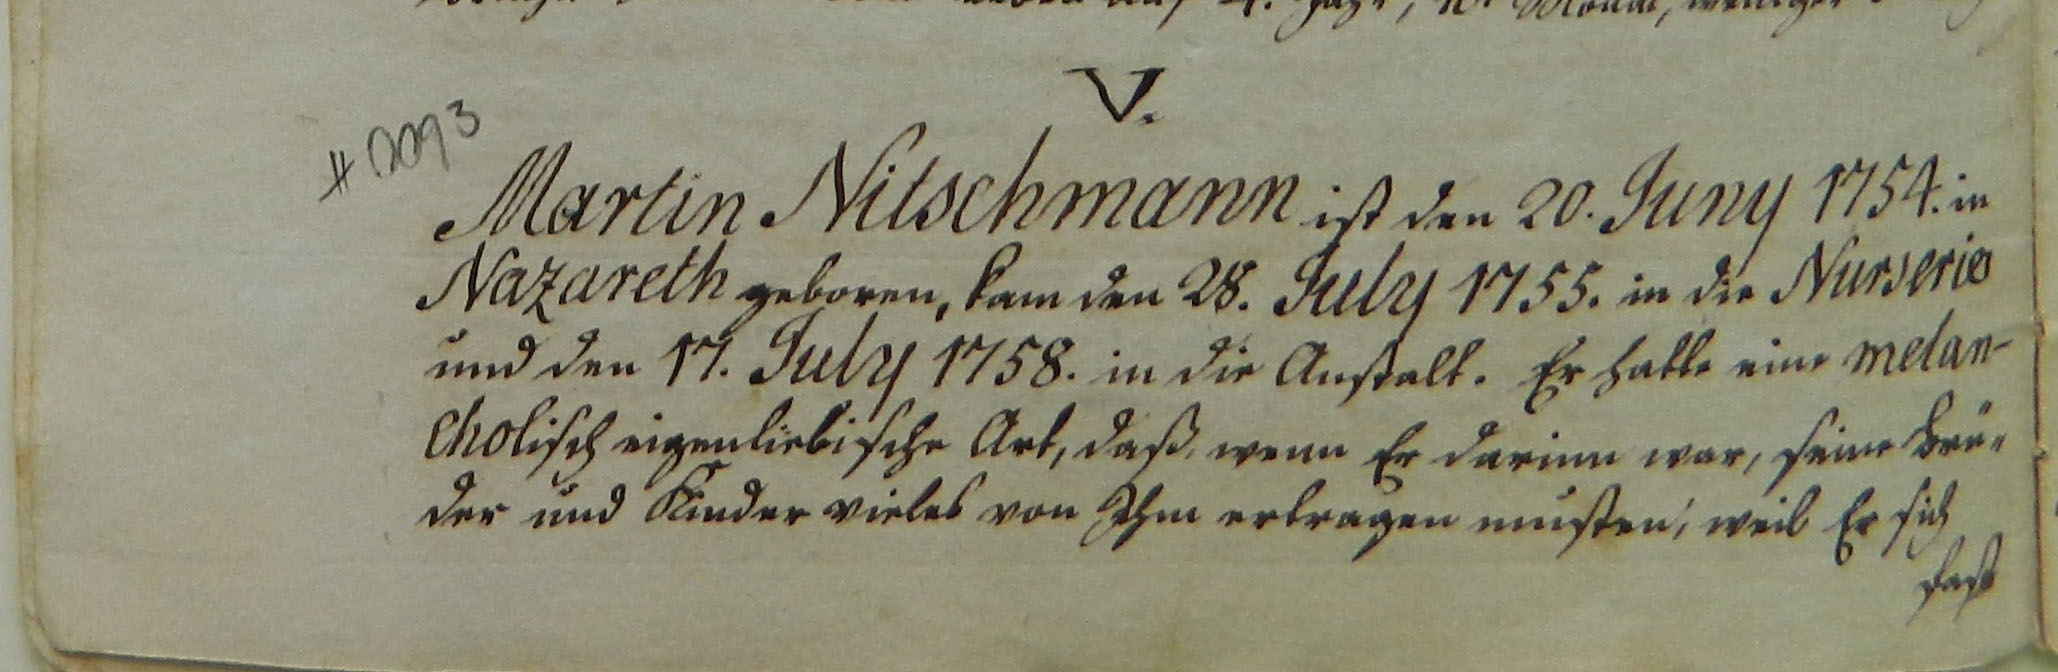 auf 4. Jahr, 10. Monat, weniger
V.
#
Martin Nitschmann ist den 20. Juny 1754. in
Nazareth geboren, kam den 28. July 1755. in die Nurserie
und den 17. July 1758. in die Anstalt. Er hatte eine melan-
cholisch eigenliebische Art, daß, wenn Er darinn war, seine Brü-
der und Kinder vieles von Ihm ertragen musten, weil Er sich
fast